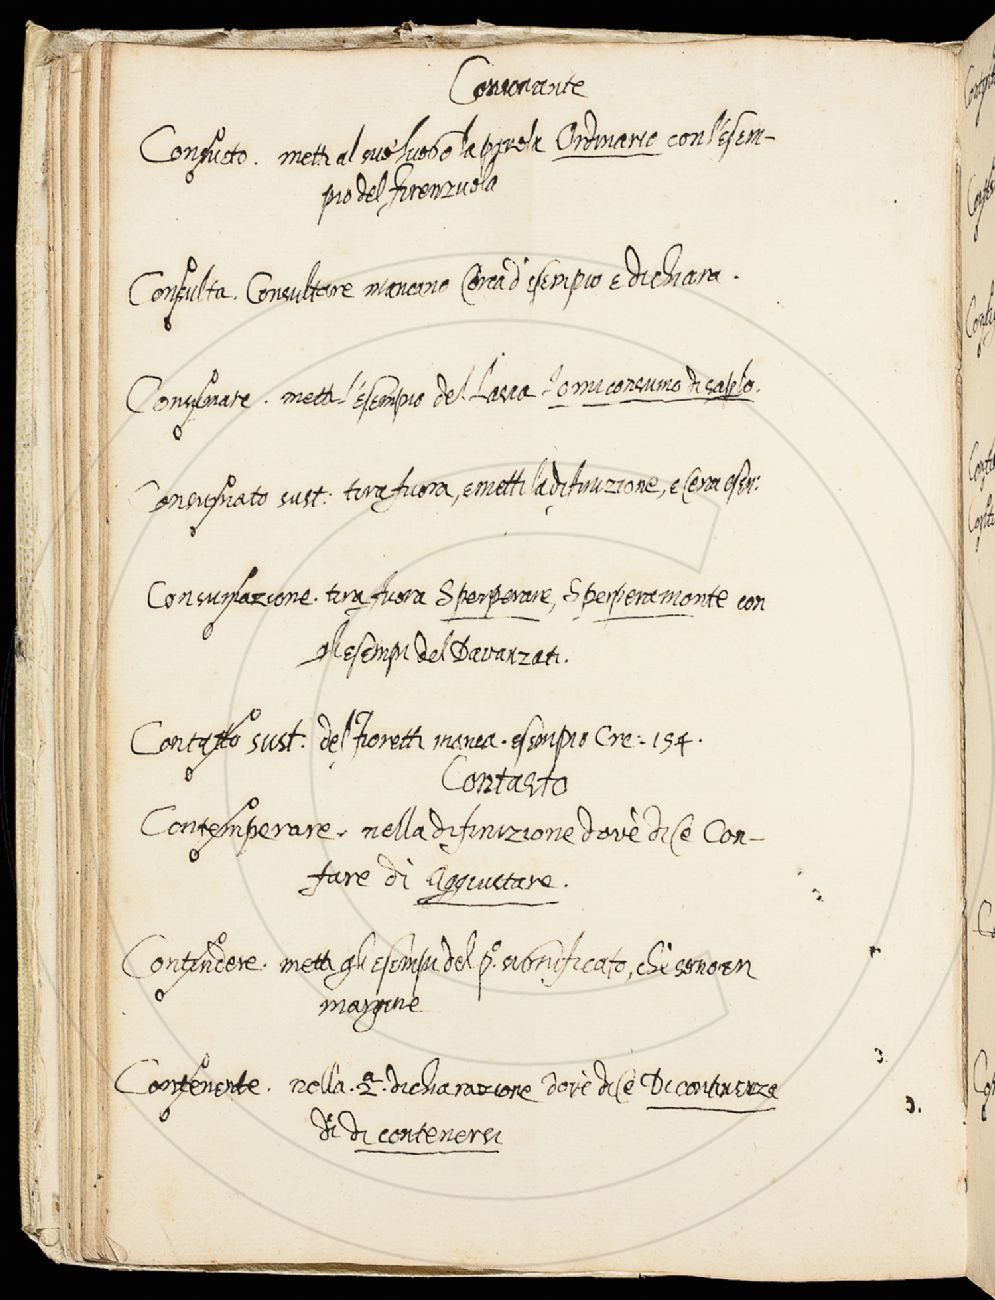 Consonante
Consueto. metti al suo luogo la parola Ordinario con l'esem-
pio del firenzuola
Consulta. Consultare mancano Cerca d'esempio e dichiara.
Consumare. metti l'esempio del Lasca Io mi consumo di saplo.
Consumato sust: tira fuora, e metti la difinizione, e Cerca esem:
Consumazione. tira fuora Sperperare, Sperperamento con
gli esempi del Davanzati.
Contatto sust: del Fioretti manca. esempio Cre: 154.
Contasto
Contemperare. nella difinizione dov'è dice Con-
fare di Aggiustare.
Contendere. metti gli esempi del p.o significato, che sono in
margine
Contenente. nella. 2.a dichiarazione dov'è dice Di continenza
di di contenersi